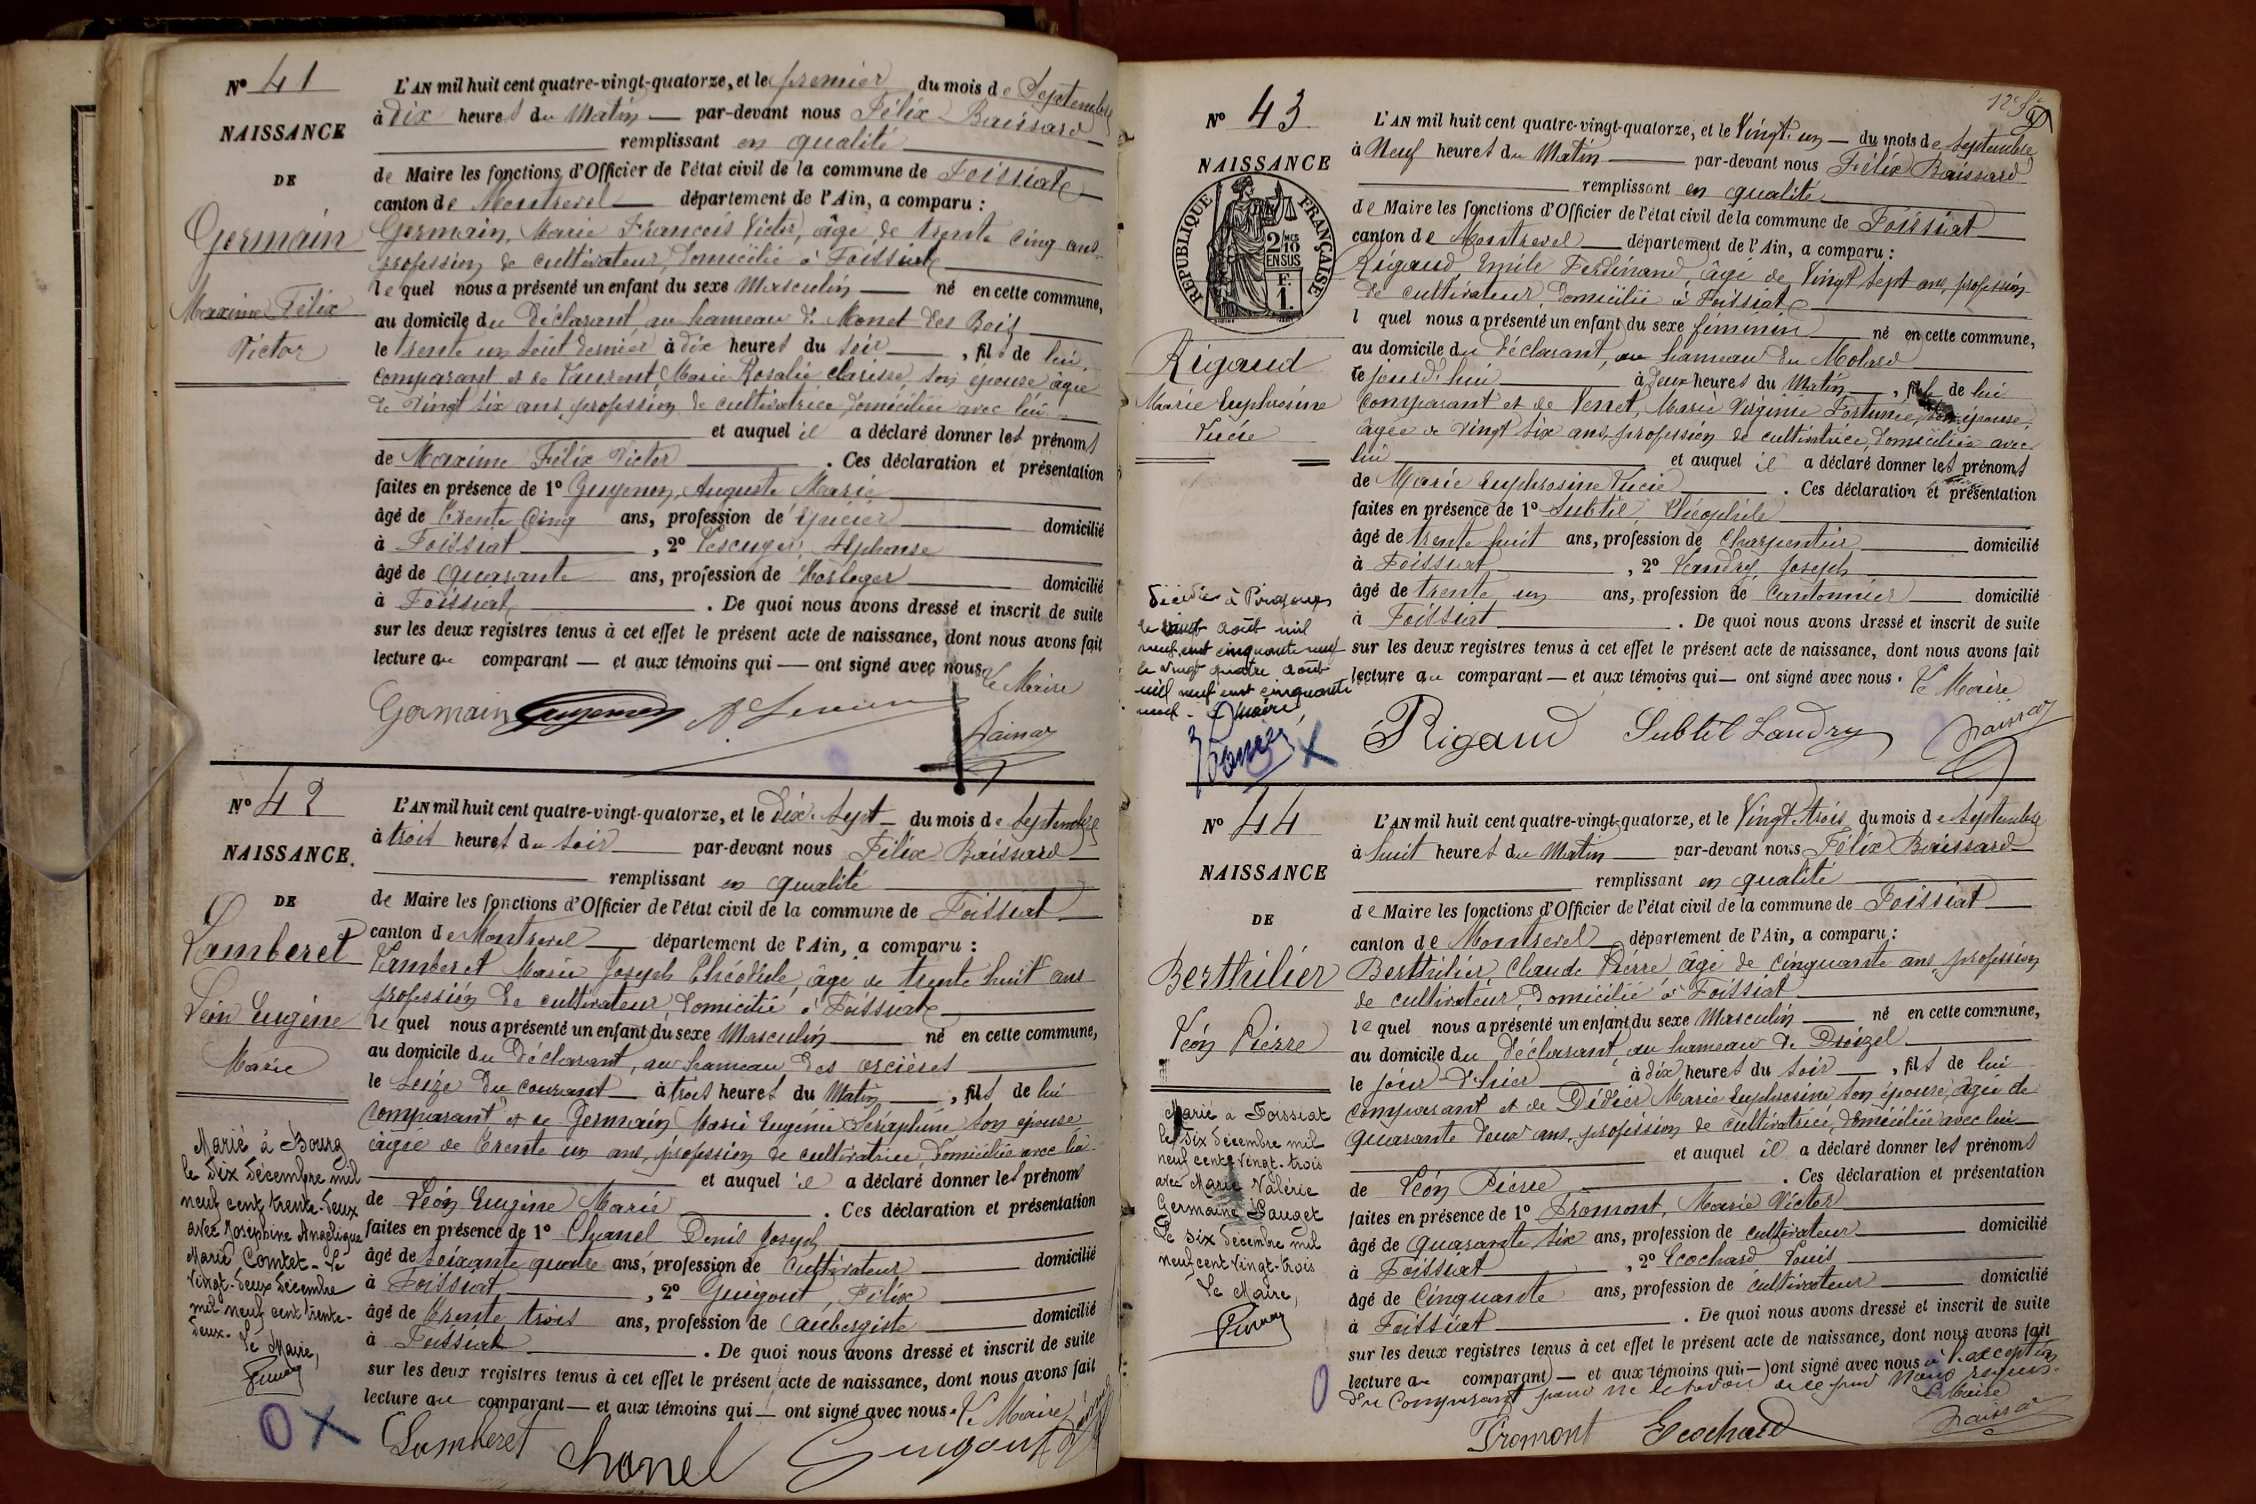 Nº 41
NAISSANCE
DE
Germain
Maxime Félix
Victor
L'AN mil huit cent quatre-vingt-quatorze, et le premier du mois de Septembre
à dix heures du Matin par-devant nous Félix Baissard
remplissant en qualité
de Maire les fonctions d'Officier de l'état civil de la commune de Foissiat
canton de Montrevel département de l'Ain, a comparu :
Germain, Marie François Victor, âgé de trente cinq ans
profession de cultivateur, domicilié à Foissiat
lequel nous a présenté un enfant du sexe Masculin né en cette commune,
au domicile du déclarant au hameau de Monet des Bois
le trente un août dernier à dix heures du soir, fils de lui
comparant et de Laurent, Marie Rosalie Clarisse, son épouse âgée
de vingt six ans, profession de cultivatrice domiciliée avec lui
et auquel il a déclaré donner les prénoms
de Maxime Félix Victor. Ces déclaration et présentation
faites en présence de 1º Guyenon, Auguste Marie
âgé de trente cinq ans, profession de épicier domicilié
à Foissiat, 2º Alphonse
âgé de quarante ans, profession de Horloger domicilié
à Foissiat. De quoi nous avons dressé et inscrit de suite
sur les deux registres tenus à cet effet le présent acte de naissance, dont nous avons fait
lecture au comparant — et aux témoins qui — ont signé avec nous. Le Maire
Germain Guyenon
Nº 42
NAISSANCE.
DE
Lamberet
Léon Eugène
Marie
L'AN mil huit cent quatre-vingt-quatorze, et le dix-sept du mois de Septembre
à trois heures du soir par-devant nous Félix Baissard
remplissant en qualité
de Maire les fonctions d'Officier de l'état civil de la commune de Foissiat
canton de Montrevel département de l'Ain, a comparu :
Lamberet Marie Joseph Théodule, âgé de trente huit ans
profession de cultivateur, domicilié à Foissiat
lequel nous a présenté un enfant du sexe Masculin né en cette commune,
au domicile du déclarant, au hameau des
le seize du courant à trois heures du Matin, fils de lui
comparant et de Germain Marie Eugénie Séraphine son épouse
âgée de trente un ans, profession de cultivatrice domiciliée avec lui
et auquel il a déclaré donner les prénoms
de Léon Eugène Marie. Ces déclaration et présentation
faites en présence de 1º Chanel Denis Joseph
âgé de soixante quatre ans, profession de cultivateur domicilié
à Foissiat, 2º Guigout, Félix
âgé de trente trois ans, profession de aubergiste domicilié
à Foissiat. De quoi nous avons dressé et inscrit de suite
sur les deux registres tenus à cet effet le présent acte de naissance, dont nous avons fait
lecture au comparant — et aux témoins qui — ont signé avec nous. Le Maire
Lamberet Chanel Guigout
Marié à Bourg
le dix décembre mil
neuf cent trente-deux
avec Joséphine Angélique
Marie Comtet - Le
vingt-deux décembre
mil neuf cent trente-
deux. Le Maire,
Nº 43
NAISSANCE
REPUBLIQUE FRANÇAISE
2/10 EN SUS
1 F.
Rigaud
Marie Euphrosine
Lucie
L'AN mil huit cent quatre-vingt-quatorze, et le Vingt-un du mois de Septembre
à Neuf heures du Matin par-devant nous Félix Baissard
remplissant en qualité
de Maire les fonctions d'Officier de l'état civil de la commune de Foissiat
canton de Montrevel département de l'Ain, a comparu :
Rigaud, Emile Ferdinand, âgé de vingt sept ans, profession
de cultivateur, domicilié à Foissiat
l quel nous a présenté un enfant du sexe féminin né en cette commune,
au domicile du déclarant, au hameau du Molard
le jourd'hui à deux heures du Matin, fil de lui
comparant et de Verret, Marie Virginie Fortunée, son épouse
âgée de vingt six ans, profession de cultivatrice, domiciliée avec
lui et auquel il a déclaré donner les prénoms
de Marie Euphrosine Lucie. Ces déclaration et présentation
faites en présence de 1º Subtil, Théophile
âgé de trente huit ans, profession de Charpentier domicilié
à Foissiat, 2º Landry Joseph
âgé de trente un ans, profession de Cantonnier domicilié
à Foissiat. De quoi nous avons dressé et inscrit de suite
sur les deux registres tenus à cet effet le présent acte de naissance, dont nous avons fait
lecture au comparant — et aux témoins qui — ont signé avec nous. Le Maire
Rigaud Subtil Landry
Décédée à
le août mil
neuf cent cinquante neuf
le vingt quatre août
mil neuf cent cinquante
neuf - Le Maire
Nº 44
NAISSANCE
DE
Berthilier
Léon Pierre
L'AN mil huit cent quatre-vingt-quatorze, et le Vingt-trois du mois de Septembre
à huit heures du Matin par-devant nous Félix Baissard
remplissant en qualité
de Maire les fonctions d'Officier de l'état civil de la commune de Foissiat
canton de Montrevel département de l'Ain, a comparu :
Berthilier, Claude Pierre âgé de cinquante ans, profession
de cultivateur, domicilié à Foissiat
lequel nous a présenté un enfant du sexe Masculin né en cette commune,
au domicile du déclarant au hameau de
le jour d'hier à dix heures du soir, fils de lui
comparant et de Didier Marie Euphrosine son épouse, âgée de
quarante deux ans, profession de cultivatrice, domiciliée avec lui
et auquel il a déclaré donner les prénoms
de Léon Pierre. Ces déclaration et présentation
faites en présence de 1º Fromont, Marie Victor
âgé de quarante six ans, profession de cultivateur domicilié
à Foissiat, 2º Ecochard Louis
âgé de cinquante ans, profession de cultivateur domicilié
à Foissiat. De quoi nous avons dressé et inscrit de suite
sur les deux registres tenus à cet effet le présent acte de naissance, dont nous avons fait
lecture au comparant — et aux témoins qui — ont signé avec nous à l'exception
du comparant pour ne le savoir de ce par nous requis.
Le Maire
Fromont Ecochard
Marié à Foissiat
le dix décembre mil
neuf cent vingt-trois
avec Marie Valérie
Germaine Pauget
Le dix décembre mil
neuf cent vingt-trois
Le Maire,